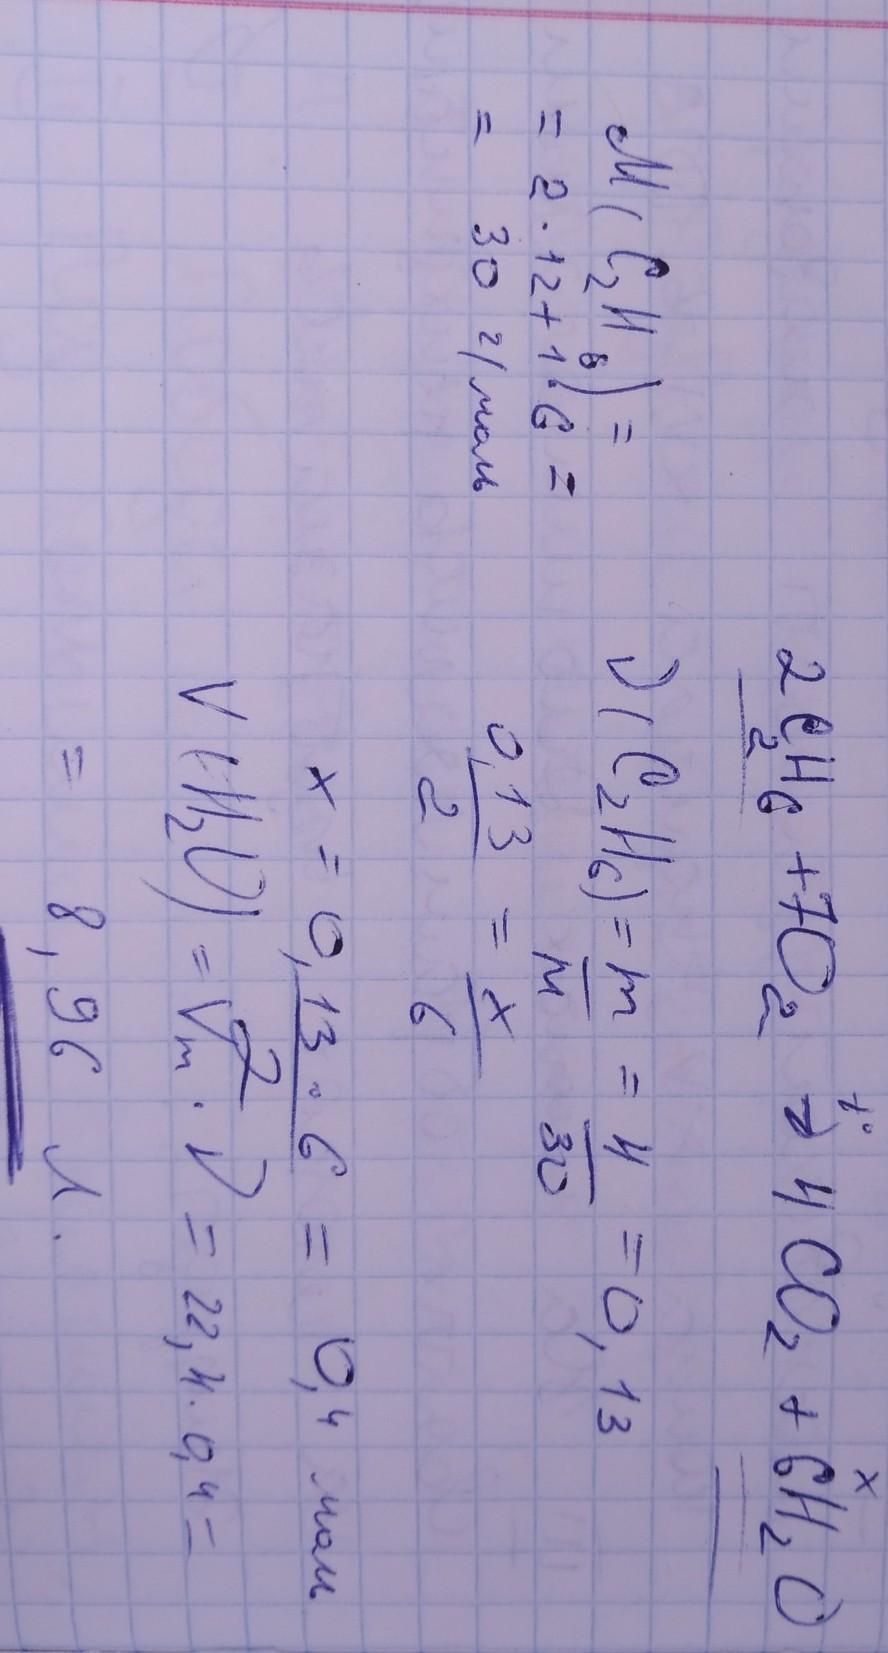 x
2C₂H₆ + 7O₂ →t° 4CO₂ + 6H₂O
M(C₂H₆) =
= 2·12+1·6 =
= 30 г/моль
ν(C₂H₆) = m/M = 4/30 = 0,13
0,13/2 = x/6
x = 0,13·6/2 = 0,4 моль
V(H₂O) = Vm · ν = 22,4·0,4 =
= 8,96 л.